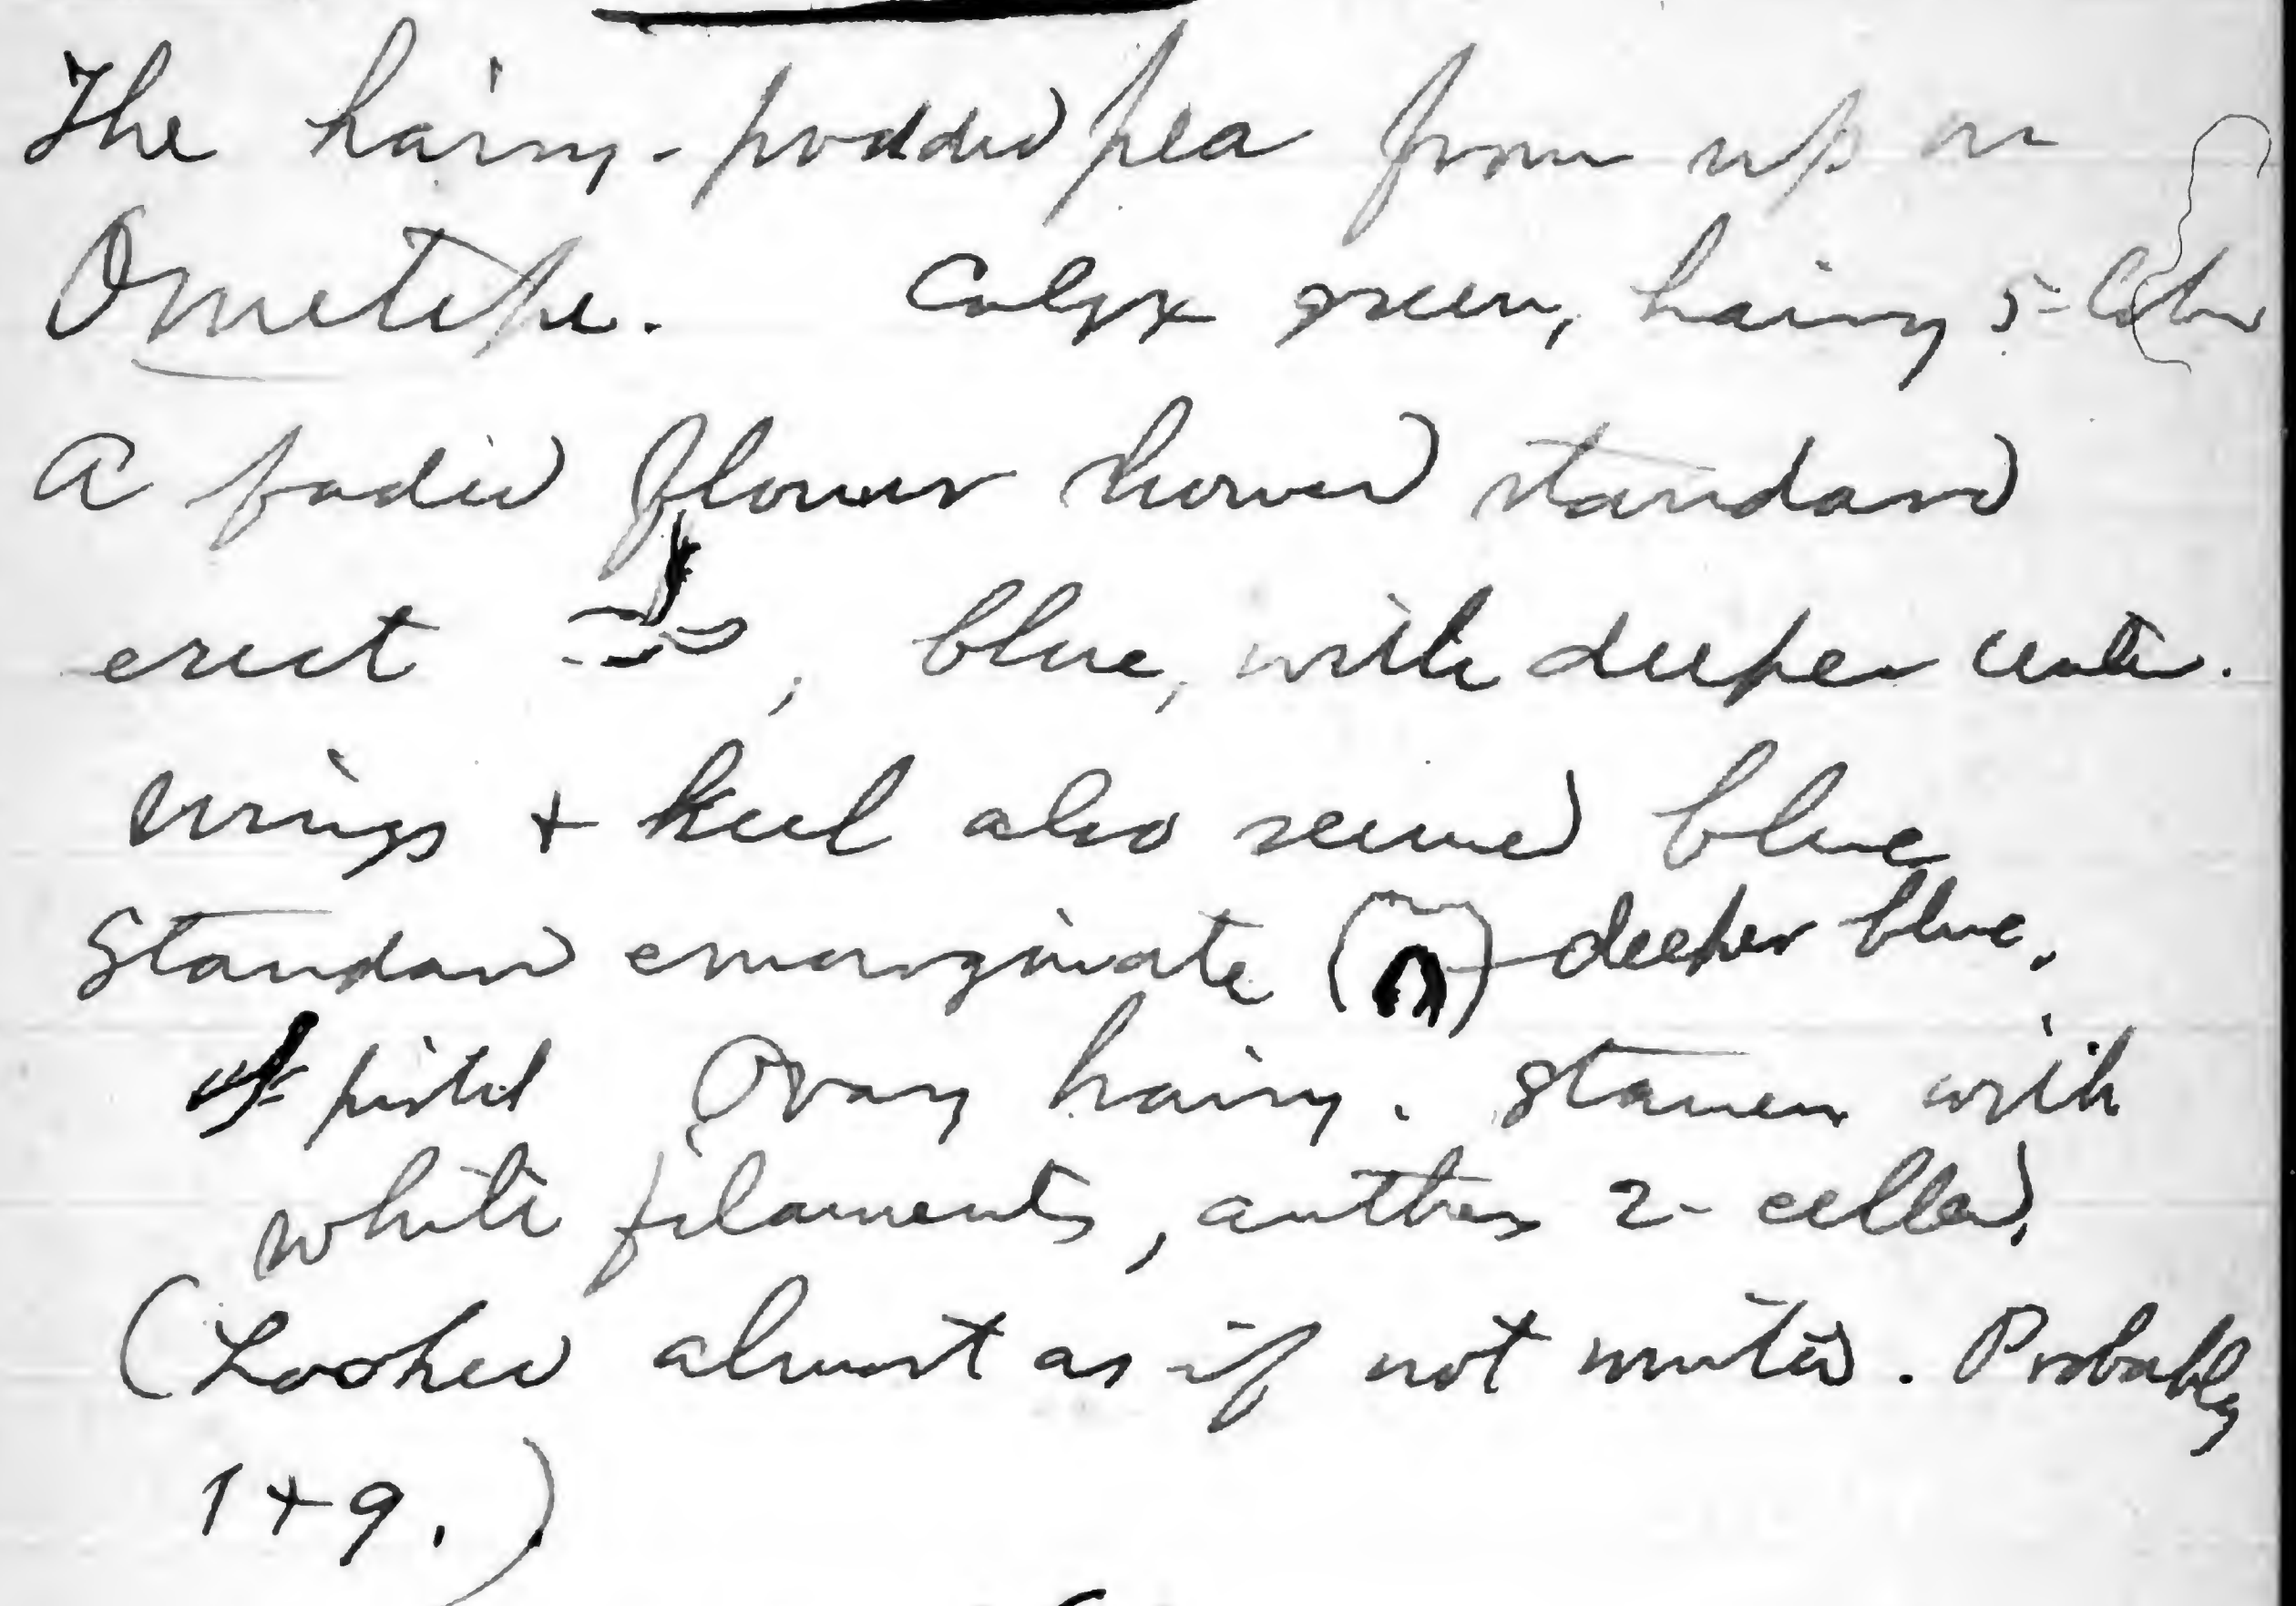 The hairy-podded pea from up on
Ometepe. Calyx green, hairy 5-lobed
A faded flower showed standard
erect , blue, with deeper center.
Wings + keel also seemed blue
Standard emarginate deeper blue.
pistil Ovary hairy. Stamens with
white filaments, anthers 2-celled.
(Looked almost as if not united. Probably
1+9.)